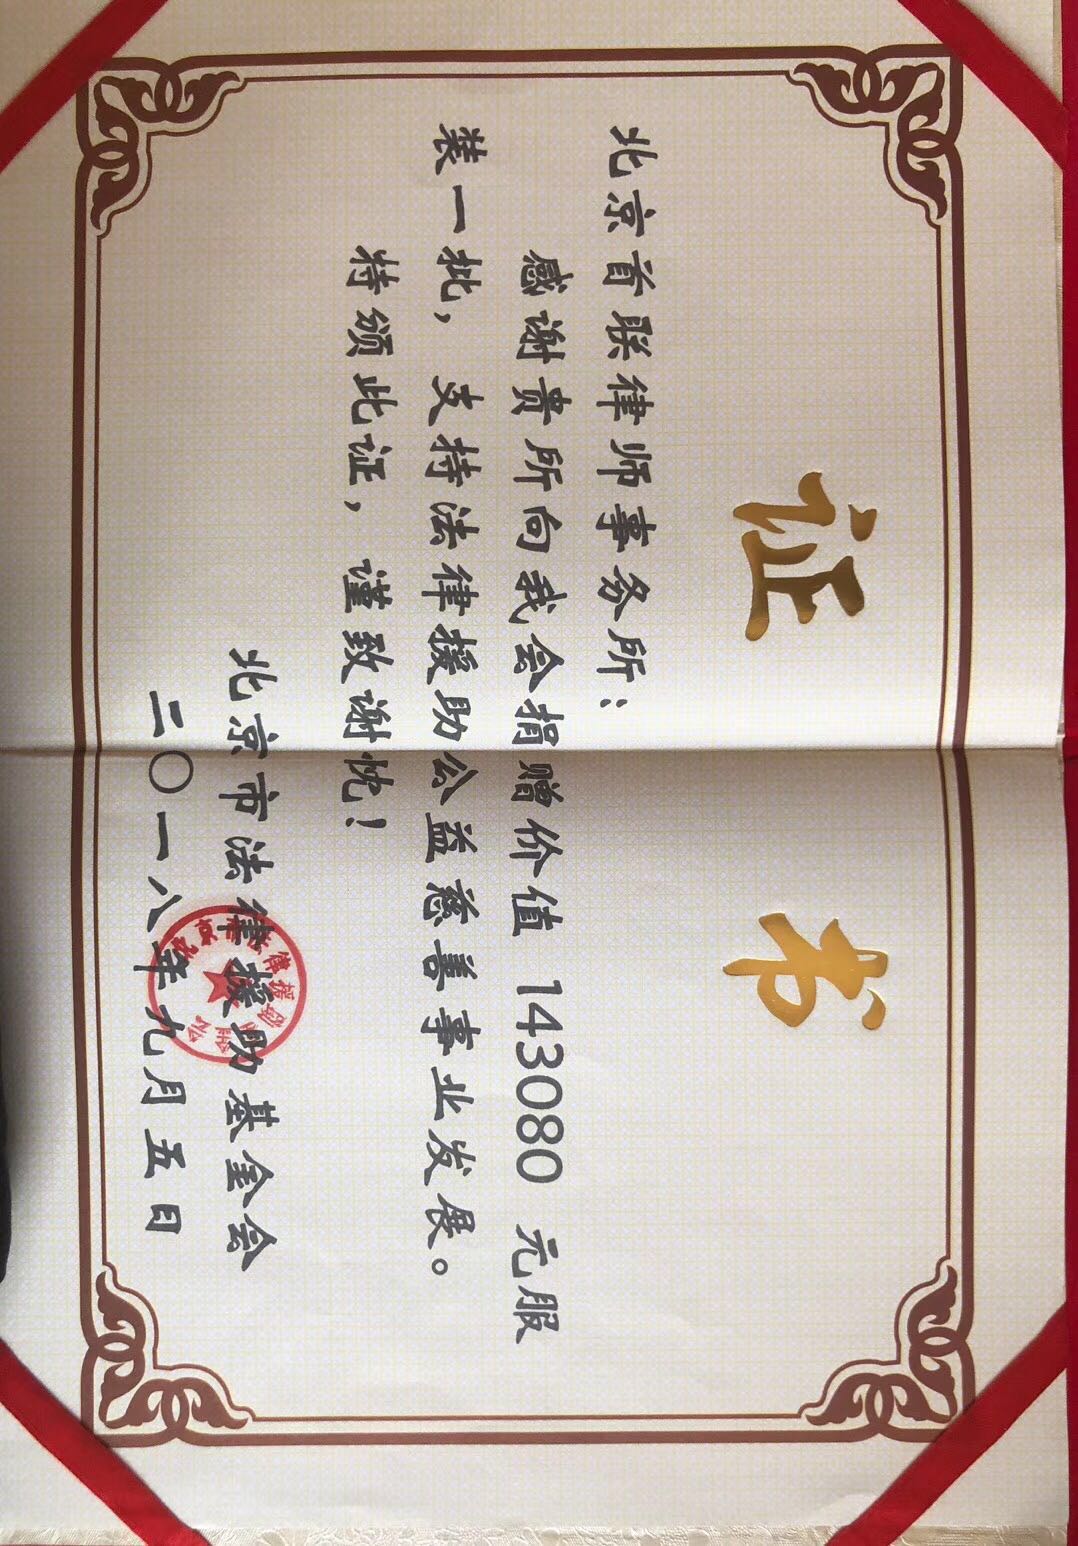 证书
北京首联律师事务所：
感谢贵所向我会捐赠价值 143080 元服
装一批，支持法律援助公益慈善事业发展。
特颁此证，谨致谢忱！
北京市法律援助基金会
二〇一八年九月五日
北京市法律援助基金会